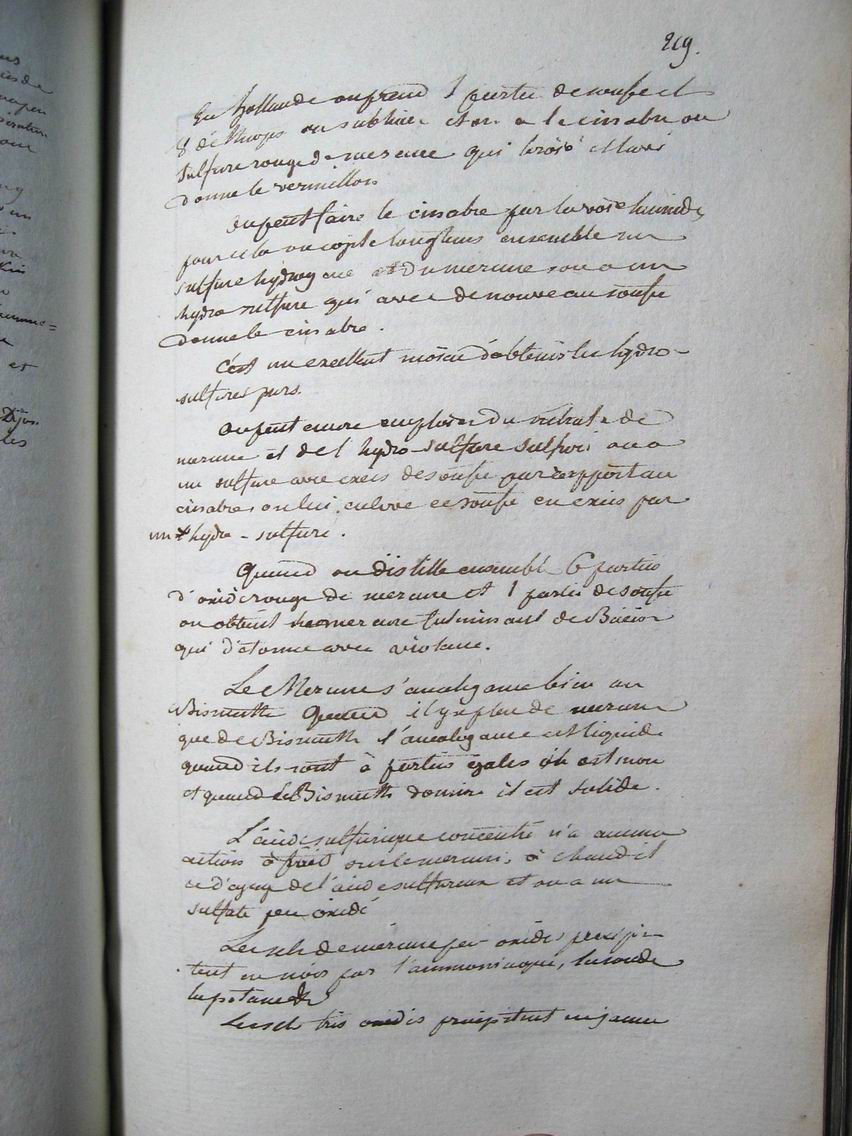 219.
En hollande on prend 1 partie de soufre et
8 de on sublime et on a le cinabre ou
sulfure rouge de mercure qui broié et lavé
donne le vermillon
On peut faire le cinabre par la voie humide,
pour cela on longtems ensemble un
sulfure hydrogené et du mercure on a un
hydro sulfure qui avec de nouveau soufre
donne le cinabre.
C'est un excellent moien d'obtenir les hydro-
sulfures purs.
On peut encore emploier du nitrate de
mercure et de l'hydro-sulfure sulfuré on a
un sulfure avec excés de soufre par rapport au
cinabre on lui enleve ce soufre en excés par
un hydro-sulfure.
Quand on distille ensemble 6 parties
d'oxide rouge de mercure et 1 partie de soufre
on obtient le mercure fulminant de
qui détonne avec violence.
Le Mercure s'amalgame bien au
Bismuth Quand il y a plus de mercure
que de Bismuth l'amalgame est liquide
quand ils sont à parties égales il est mou
et quand le Bismuth domine il est solide.
L'acide sulfurique concentré n'a aucune
action à froit sur le mercure, à chaud il
se dégage de l'acide sulfureux et on a un
sulfate peu oxidé
Les sels de mercure peu oxidés précipi-
tent en noir par l'ammoniaque, la soude
la potasse &c
Les sels très oxidés précipitent en jaune